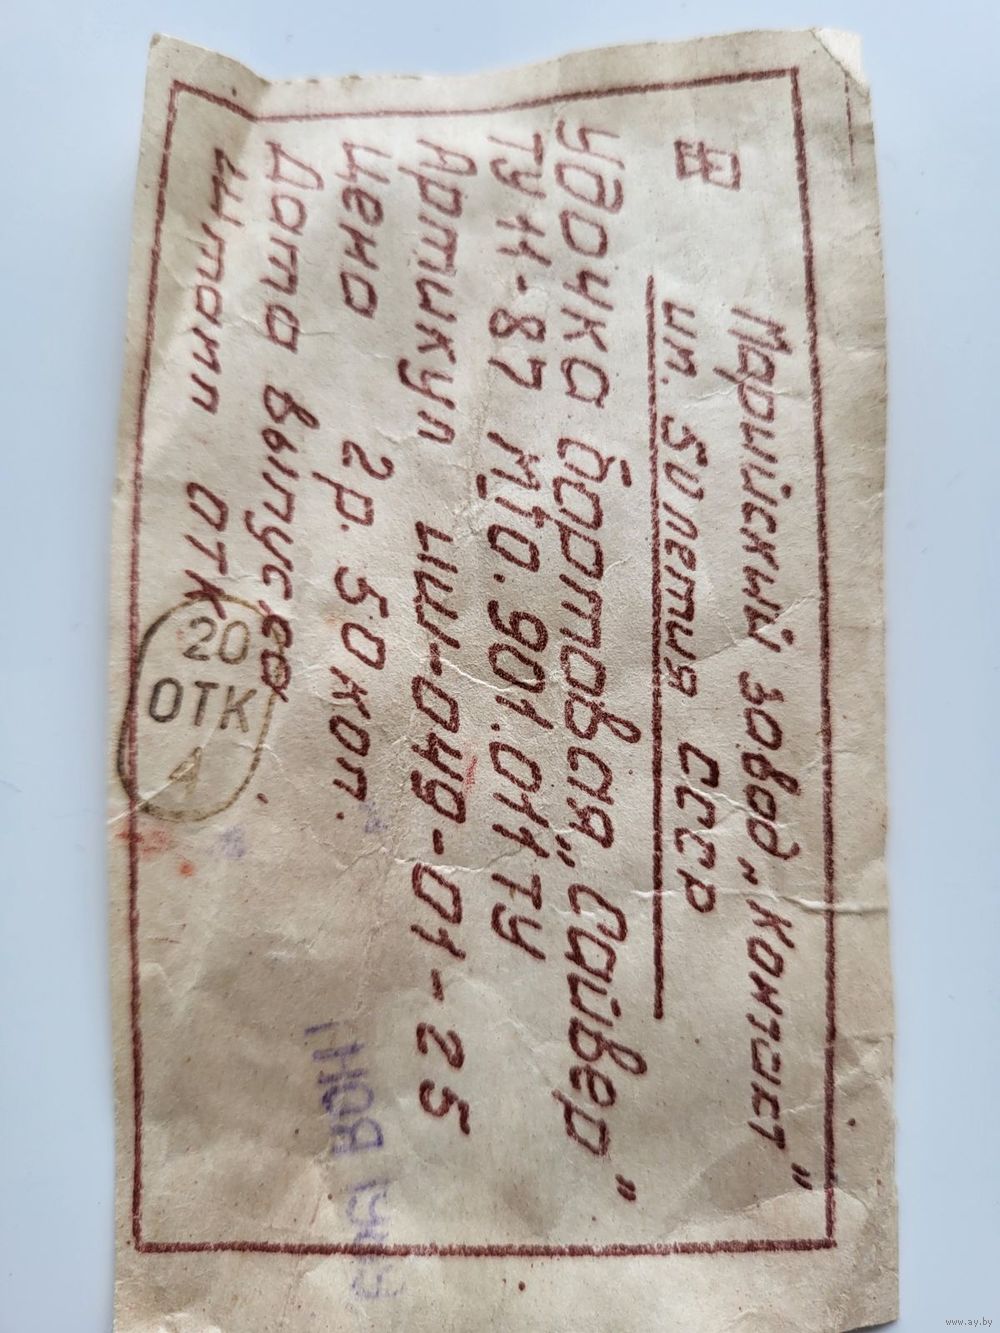 Марийский завод „Контакт"
им. 50 летия СССР
Удочка бортовая „Сайвер"
ТУ 11-87 МЮ.901.011 ТУ
Артикул ИШ-049-01-25
Цена 2р. 50 коп.
Дата выпуска
Штамп ОТК
20
ОТК
www.ay.by